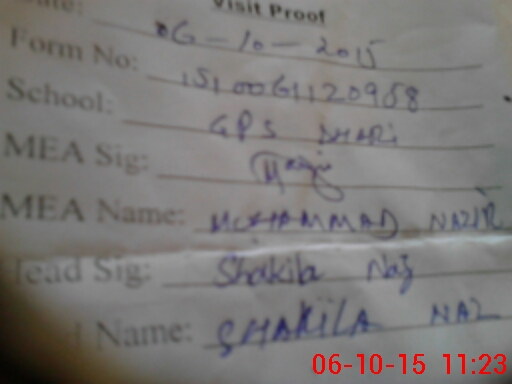 Visit Proof
Date: 06-10-2015
Form No: 1510061120958
School: GPS DHARI
MEA Sig:
MEA Name: MUHAMMAD NAZIR
Head Sig: Shakila Naz
Name: SHAKILA NAZ
06-10-15 11:23